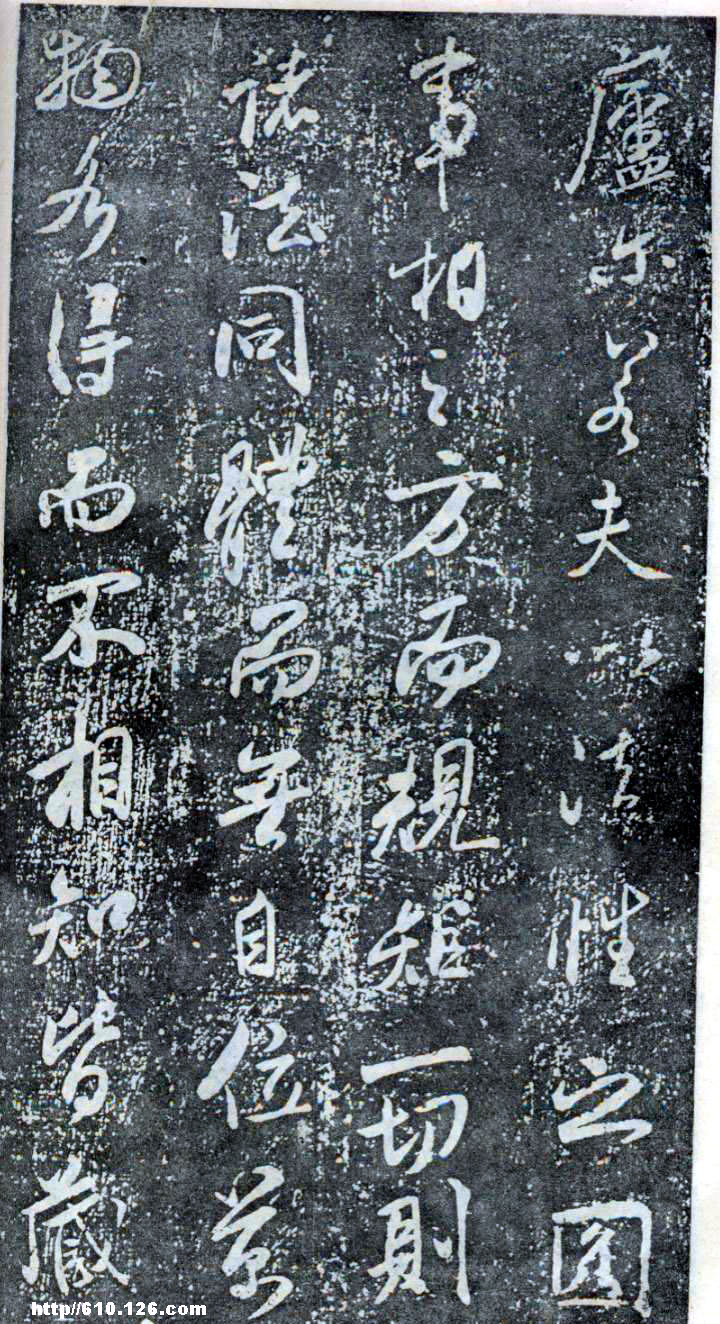 廬尔若夫以法性之圓
事相之方而規矩一切則
諸法同體而無自位萬
物各得而不相知皆藏
http//610.126.com